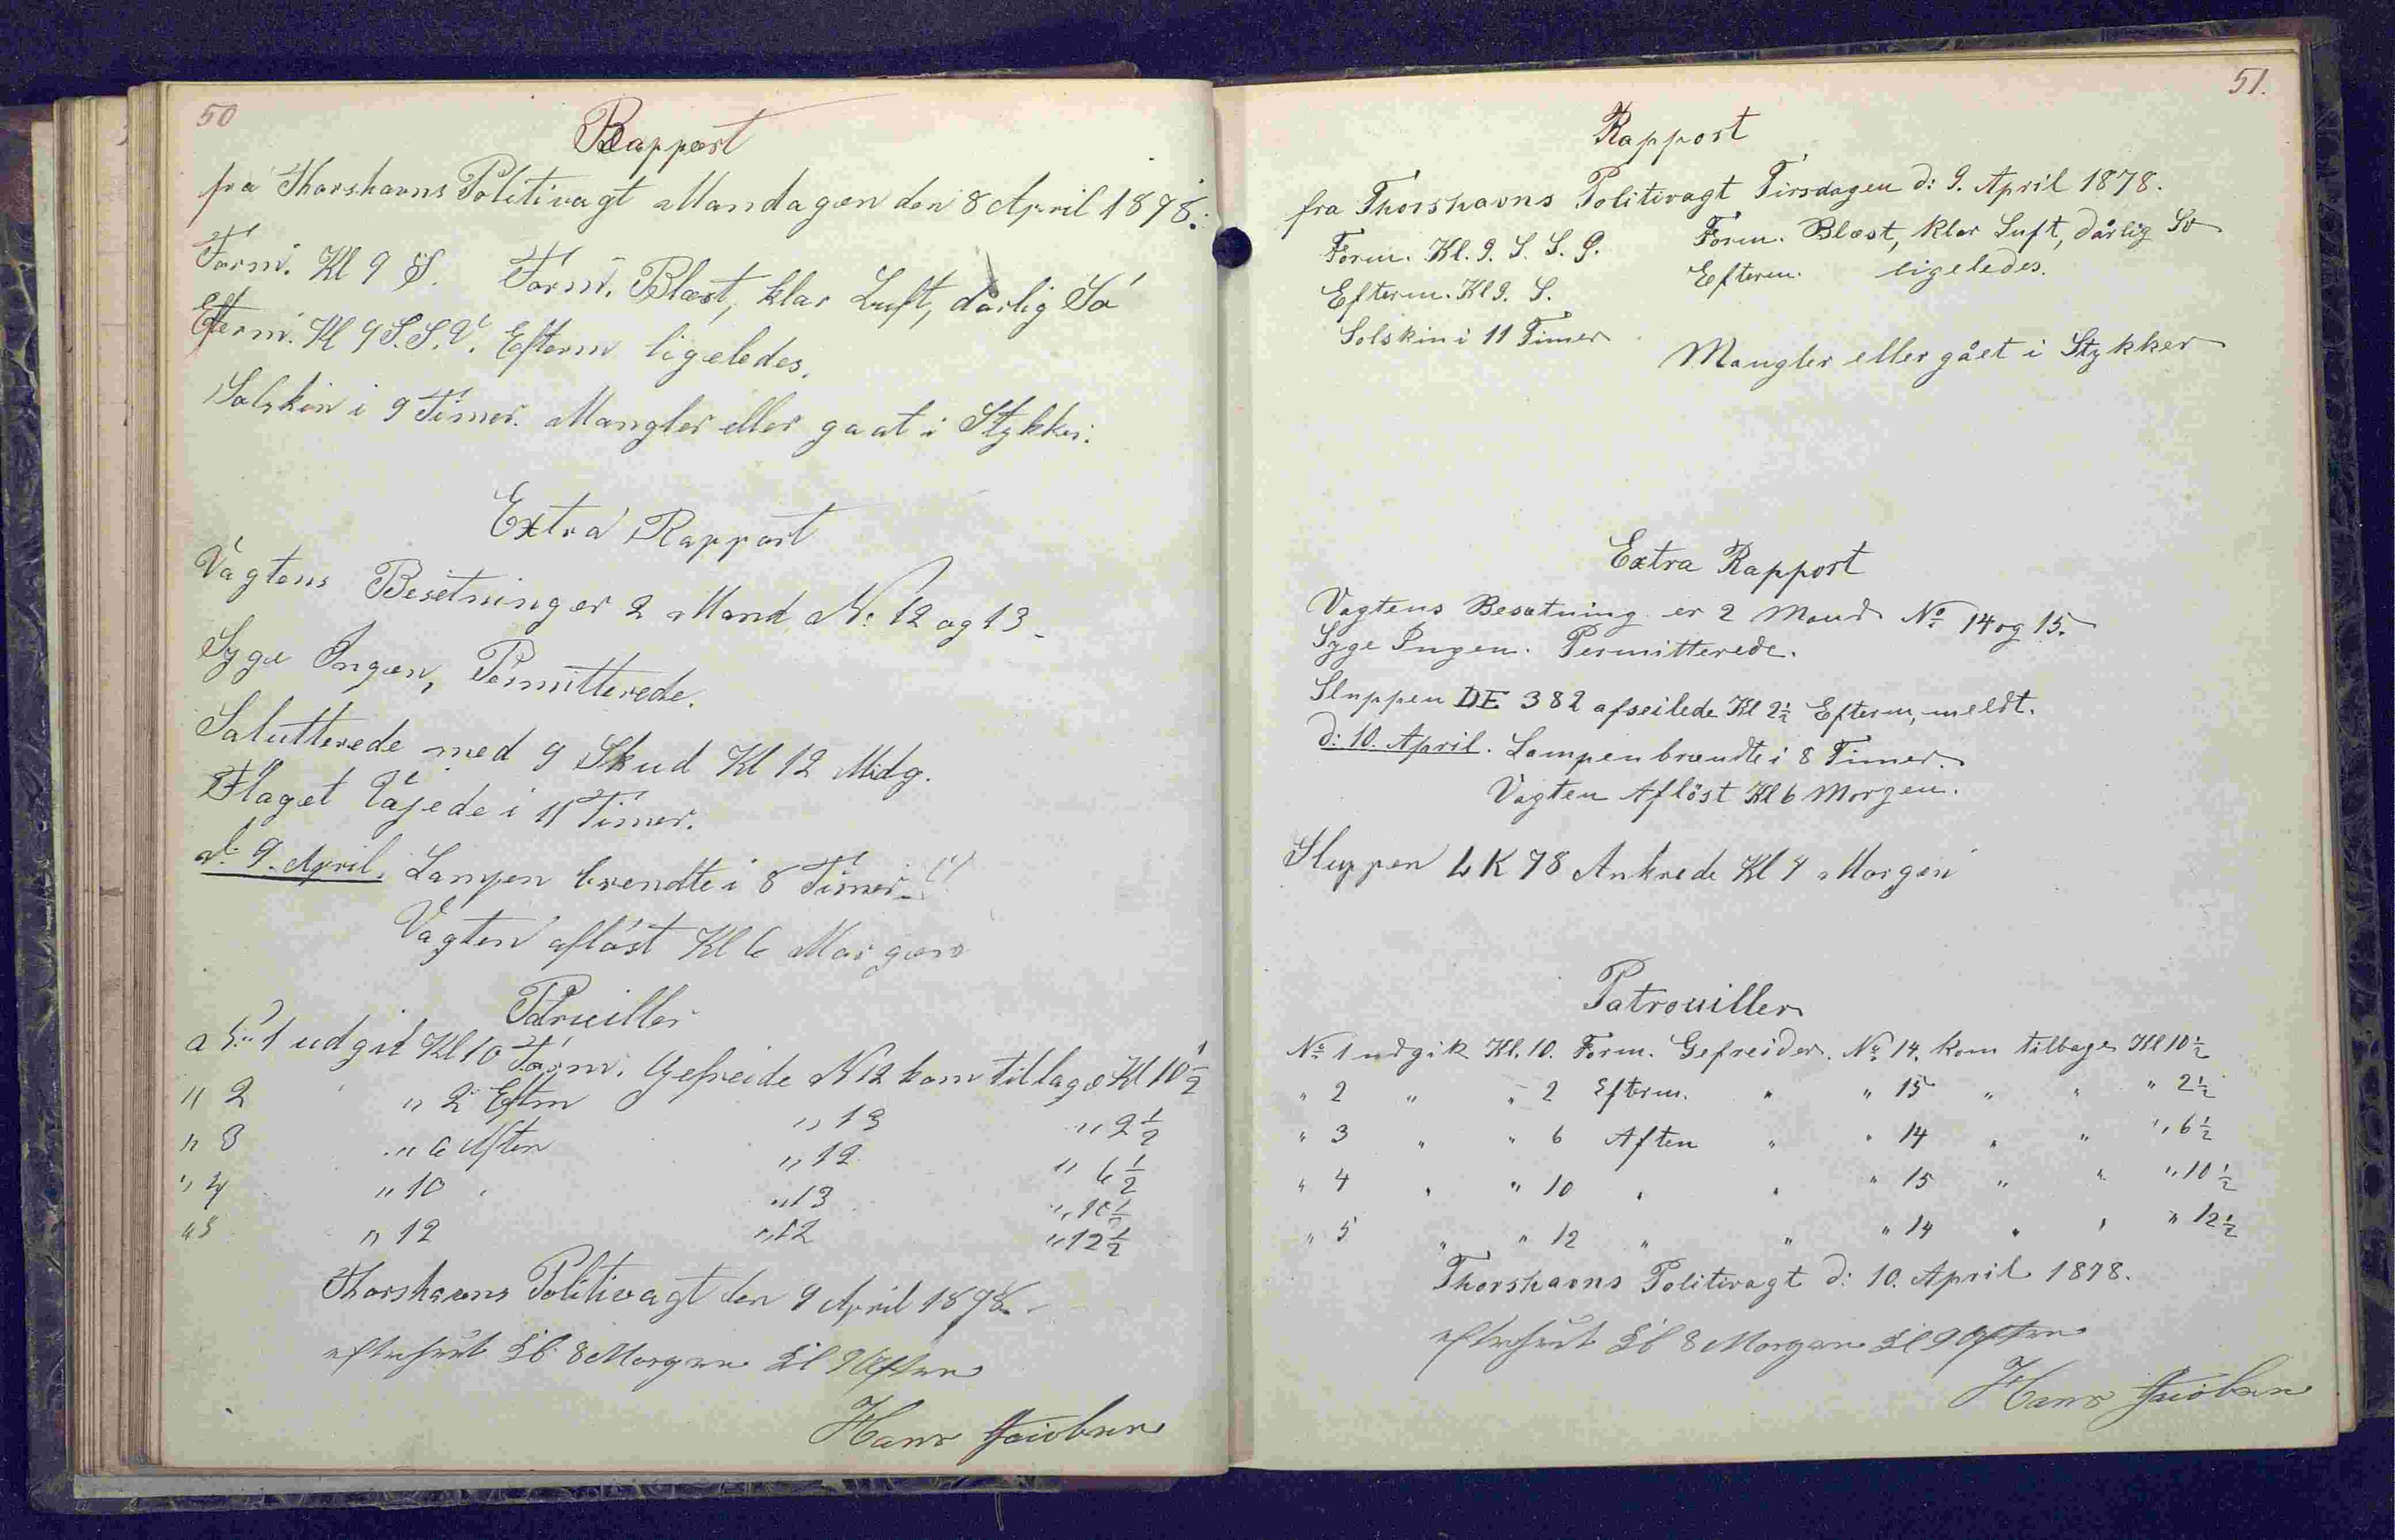 50
Rapport
fra Thorshavns Politivagt Mandagen den 8 April 1878.
Form. Kl 9 S. Form. Blæst, klar Luft, dårlig Sö
Efterm. Kl 9 S.S.V. Efterm ligeledes.
Solskin i 9 Timer. Mangler eller gaat i Stykker.
Extra Rapport
Vagtens Besetning er 2 Mand No 12 og 13
Syge Ingen, Permitterede.
Salutterede med 9 Skud Kl 12 Midg.
Flaget Vajede i 11 Timer.
d: 9. April. Lampen brendte i 8 Timer
Vagten aflöst Kl 6 Morgen
Patruiller
1 udgik Kl 10 Form. Gefreide N 12 kom tilbage Kl 10 1/2
" 2 " 2 Eftm " 13 " 2 1/2
" 3 " 6 Aften " 12 " 6 1/2
" 4 " 10 " 13 " 10 1/2
" 5 " 12 " 12 " 12 1/2
Thorshavns Politivagt den 9 April 1878
8 Morgen Kl 9 Aften
Hans Jacobsen
51.
Rapport
fra Thorshavns Politivagt Tirsdagen d: 9. April 1878.
Form. Kl. 9. S. S. Ø. Form. Blæst, klar Luft, dårlig Sö
Efterm. Kl 9. S. Efterm. ligeledes.
Solskin i 11 Timer
Mangler eller gået i Stykker
Extra Rapport
Vagtens Besætning er 2 Mand No 14 og 15.
Syge Ingen. Permitterede.
Sluppen DE 382 afseilede Kl 2 1/2 Efterm, meldt.
d: 10. April. Lampen brændte i 8 Timer.
Vagten Aflöst Kl 6 Morgen.
Sluppen LK 78 Ankrede Kl 4 Morgen
Patrouiller
No 1 udgik Kl. 10. Form. Gefreider. No 14. kom tilbage Kl 10 1/2
" 2 " " 2 Efterm. " " 15 " " " 2 1/2
" 3 " " 6 Aften " " 14 " " " 6 1/2
" 4 " " 10 " " " 15 " " " 10 1/2
" 5 " " 12 " " " 14 " " " 12 1/2
Thorshavns Politivagt d: 10. April 1878.
8 Morgen Kl 9 Aften
Hans Jacobsen